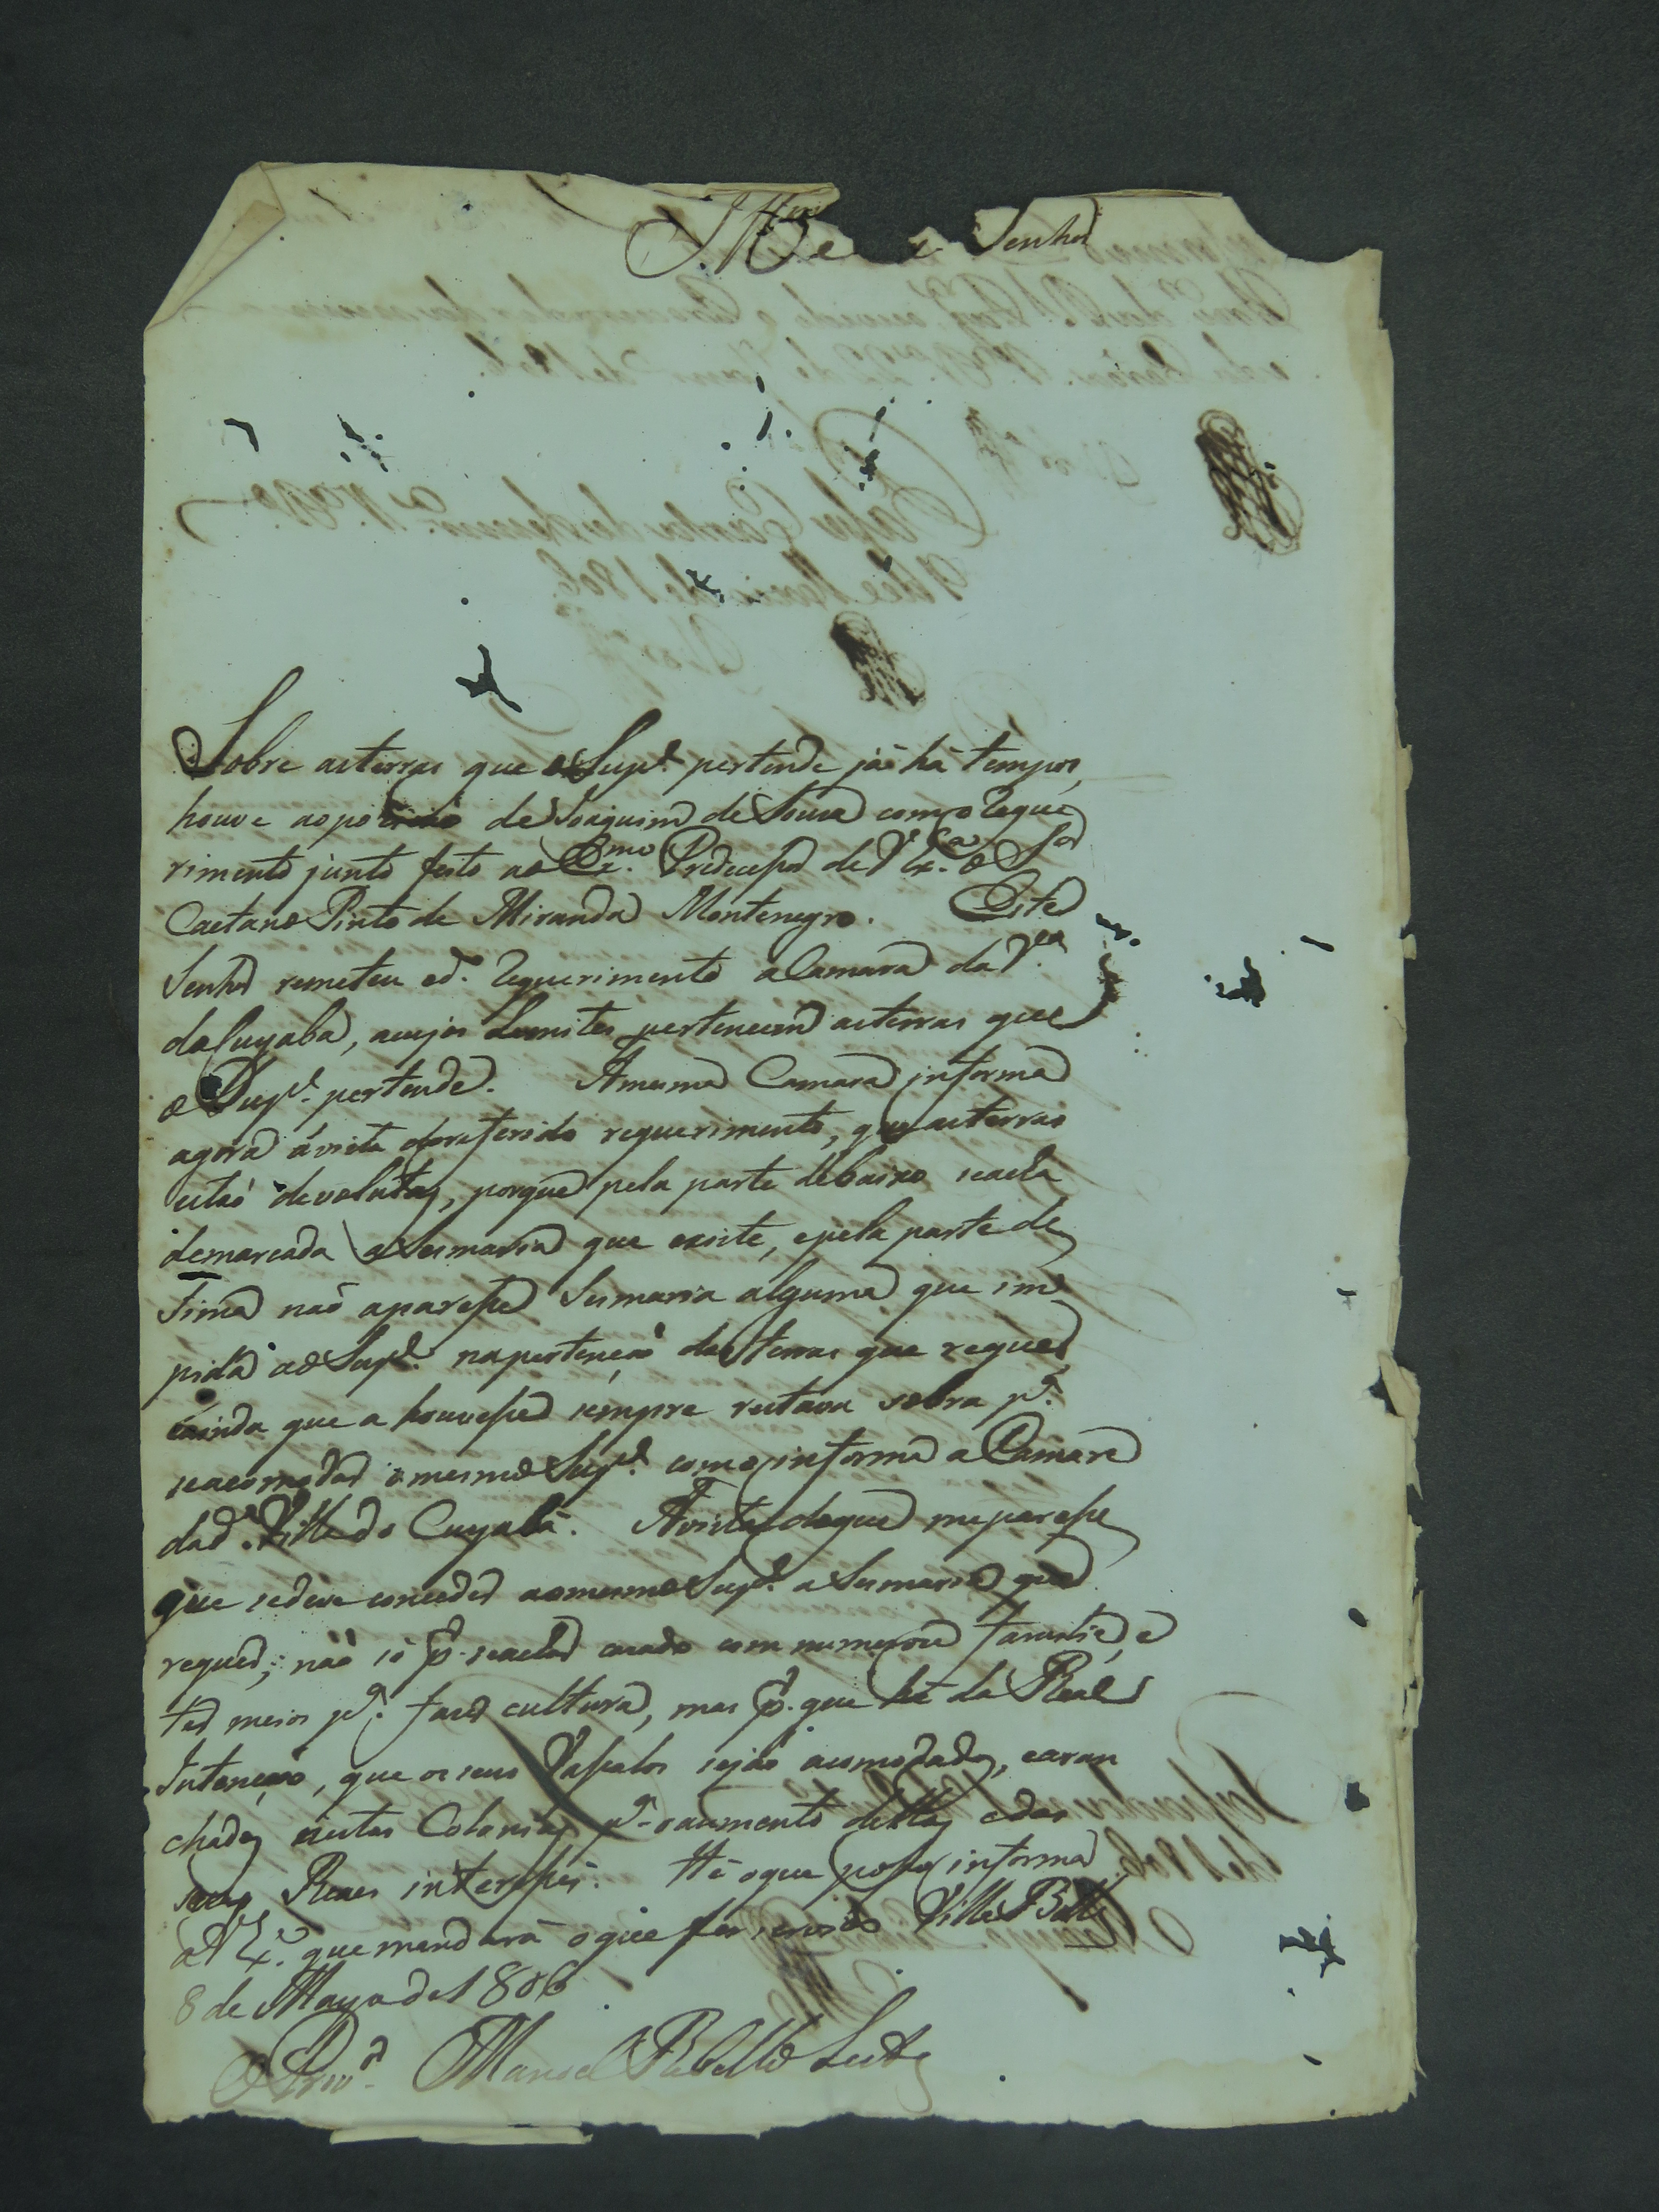 Ill.mo e Senhor
Sobre asterras que o Sup.e pertende já há tempos,
houve aopozição de Joaquim de Souza como reque
rimento junto feito ao Ex.mo Predecessor de V Ex.ca o S.or
Caetano Pinto de Miranda Montenegro. Este
Senhor remeteu od.o requerimento a Camara da V.ea
do Cuyaba, acujos Lemites pertencem asterras que
o Sup.e pertende. Amesma Camara informa
agora ávista doreferido requerimento, que asterras
estaõ devolutas, porque pela parte debaixo seacha
demarcada a Sesmaria que existe, epela parte de
Sima naõ aparesse Sesmaria alguma que im
pida ao Sup.e napertençaõ das terras que requer,
eainda que a houvesse sempre restava sobra p.a
seacomodar omesmo Sup.e como informa a Camara
dad.a Villa do Cuyabá. Avista doque meparesse
que sedeve conceder aomesmo Sup.e a Sesmaria que
requer; naõ só p.r seachar cazado com numeroza familia, e
ter meios p.a fazer cultura, mas p.r que hé da Real
Intençaõ, que os seus Vassalos sejaõ acomodados, earan
chados nestas Colonias p.a oaumento dellas edos
seus Reaes interesses. Hé oque posso informar
a V Ex.ca que mandará oque for servido Villa Bella
8 de Mayo de 1806
O Prov.or Manoel Rebello Leite